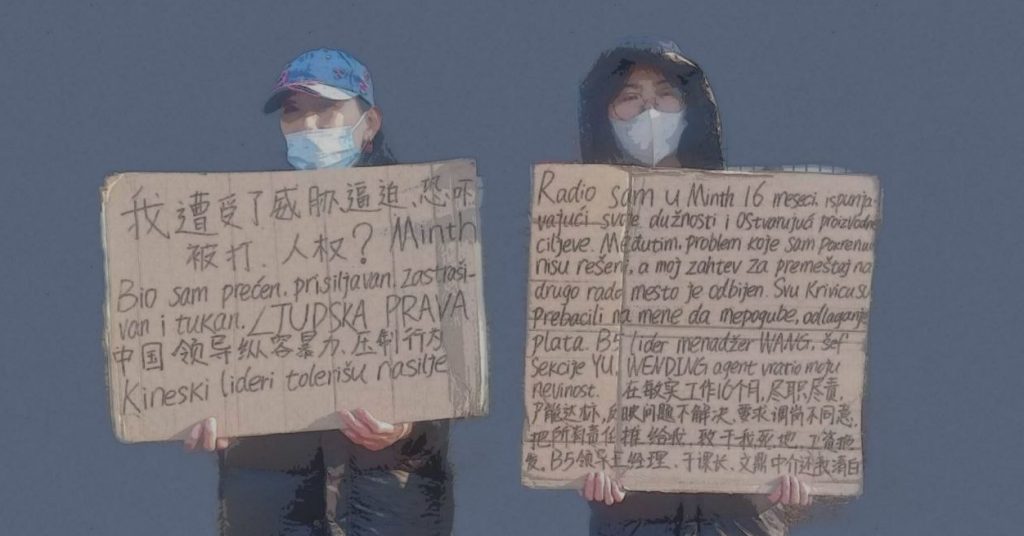 我遭受了威胁逼迫、恐吓
被打. 人权? Minth
Bio sam prećen. prisiljavan. zastraši-
van i tukan. LJUDSKA PRAVA
中国领导纵容暴力、压制行为
Kineski lideri tolerišu nasilje
Radio sam u Minth 16 meseci, ispunja-
vajući svoje dužnosti i ostvarujuć proizvodne
ciljeve. Međutim. problem koje sam pokrenu
nisu rešeni, a moj zahtev za premeštej na
drugo rado mesto je odbijen. Svu Krivicu su
Prebacili na mene da mepogube, odlaganje
plata. B5 lider menadžer WANG, šef
Sekcije YU, WENDING agent vratio moju
nevinost. 在敏实工作16个月, 尽职尽责,
产能达标, 反映问题不解决. 要求调岗不同意.
把所有责任推给我. 致于我死地. 工资拖
发. B5领导王经理、于课长、文鼎中介还我清白